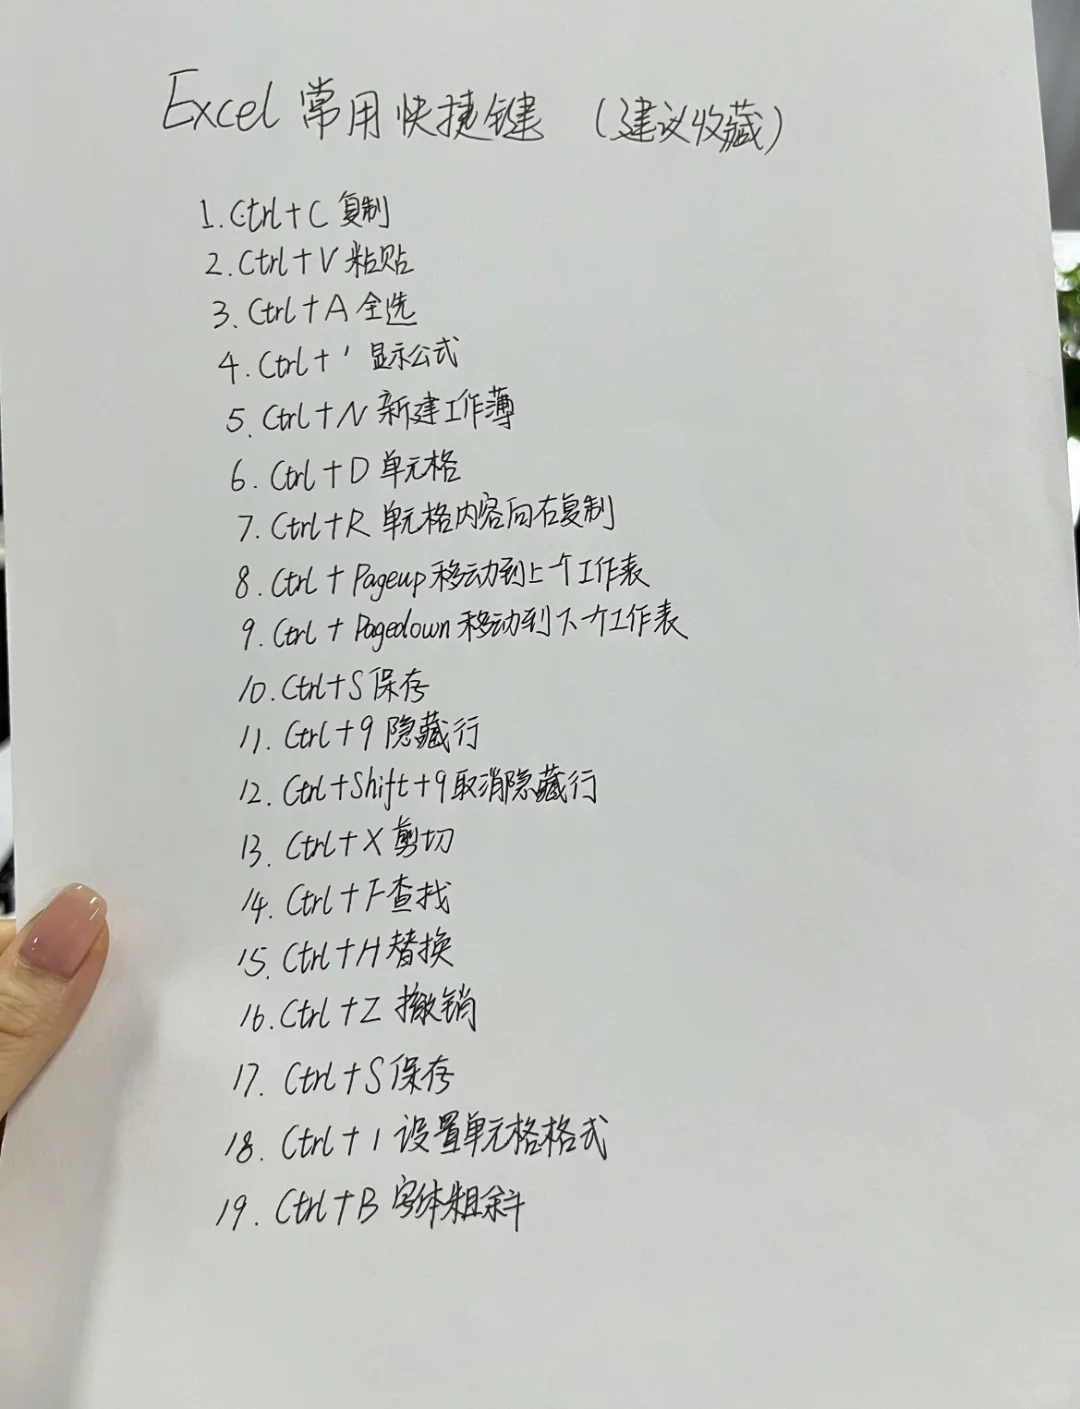 Excel 常用快捷键 （建议收藏）
1. Ctrl+C 复制
2. Ctrl+V 粘贴
3. Ctrl+A 全选
4. Ctrl+' 显示公式
5. Ctrl+N 新建工作薄
6. Ctrl+D 单元格
7. Ctrl+R 单元格内容向右复制
8. Ctrl+Pageup 移动到上一个工作表
9. Ctrl+Pagedown 移动到下一个工作表
10. Ctrl+S 保存
11. Ctrl+9 隐藏行
12. Ctrl+Shift+9 取消隐藏行
13. Ctrl+X 剪切
14. Ctrl+F 查找
15. Ctrl+H 替换
16. Ctrl+Z 撤销
17. Ctrl+S 保存
18. Ctrl+1 设置单元格格式
19. Ctrl+B 字体粗斜